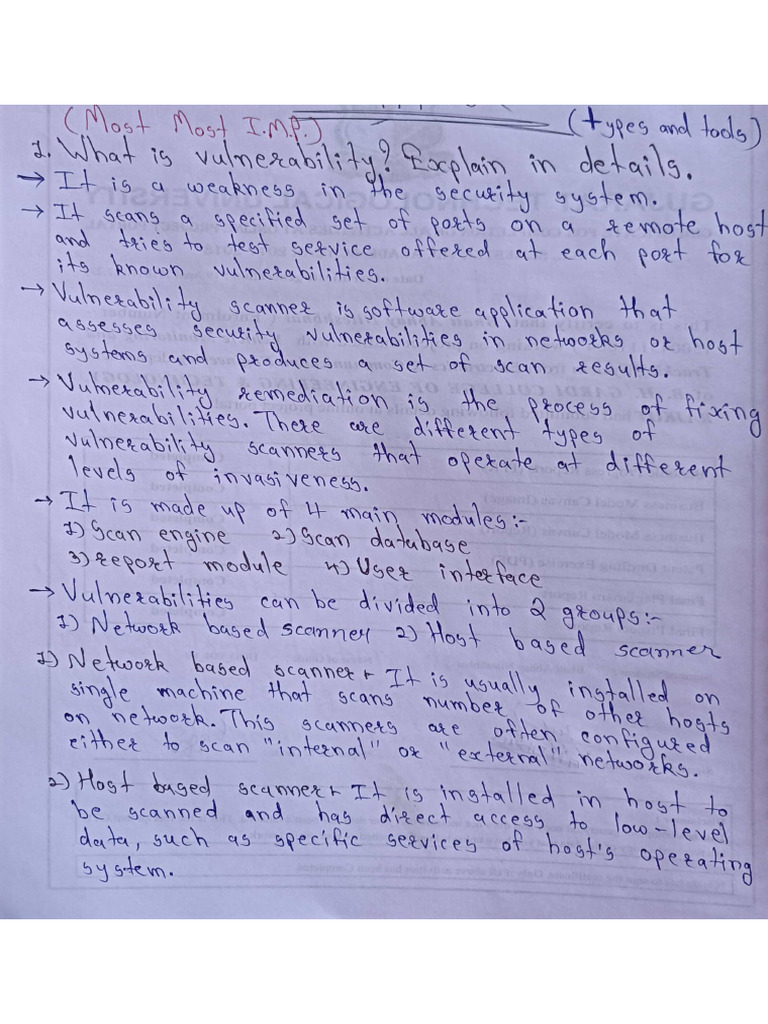 (Most Most I.M.P.)
(types and tools)
1. What is vulnerability? Explain in details.
→ It is a weakness in the security system.
→ It scans a specified set of ports on a remote host
and tries to test service offered at each port for
its known vulnerabilities.
→ Vulnerability scanner is software application that
assesses security vulnerabilities in networks or host
systems and produces a set of scan results.
→ Vulnerability remediation is the process of frixing
vulnerabilities. There are different types of
vulnerability scanners that operate at different
levels of invasiveness.
→ It is made up of 4 main modules:-
1) Scan engine 2) Scan database
3) report module 4) User interface
→ Vulnerabilities can be divided into 2 groups:-
1) Network based scanner 2) Host based scanner
1) Network based scanner:- It is usually installed on
single machine that scans number of other hosts
on network. This scanners are often configured
either to scan "internal" or "external" networks.
2) Host based scanner:- It is installed in host to
be scanned and has direct access to low-level
data, such as specific services of host's operating
system.